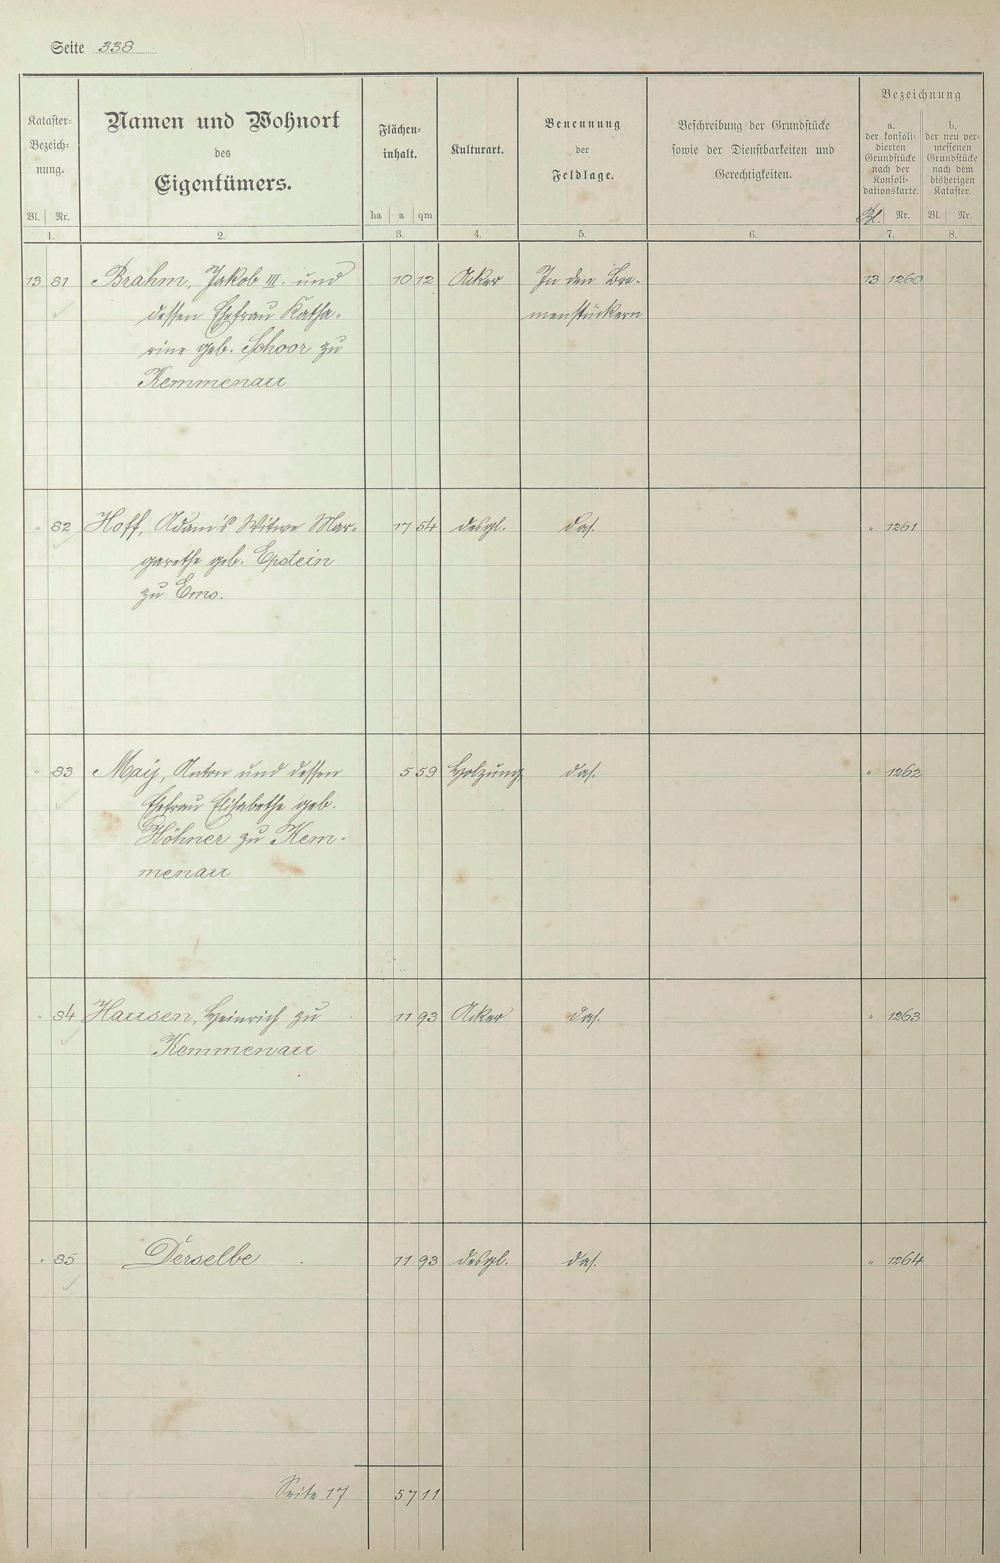 Seite 338
Kataster-
Bezeich-
nung.
Bl. Nr.
1.
Namen und Wohnort
des
Eigentümers.
2.
Flächen-
inhalt.
ha a qm
3.
Kulturart.
4.
Benennung
der
Feldlage.
5.
Beschreibung der Grundstücke
sowie der Dienstbarkeiten und
Gerechtigkeiten.
6.
Bezeichnung
a.
der konsoli-
dierten
Grundstücke
nach der
Konsoli-
dationskarte.
Bl. Nr.
7.
b.
der neu ver-
messenen
Grundstücke
nach dem
bisherigen
Kataster.
Bl. Nr.
8.
13 81 Brahm, Jakob III. und 10 12 Acker In den Bre- 13 1260
dessen Ehefrau Katha- menstückern
rine geb. Schoor zu
Kemmenau
" 82 Hoff, Adam's Witwe Mar- 17 54 desgl. das. " 1261
garethe geb. Epstein
zu Ems.
" 83 May, Anton und dessen 5 59 Holzung das. " 1262
Ehefrau Elisabethe geb.
Höhner zu Kem-
menau
" 84 Hausen, Heinrich zu 11 93 Acker das. " 1263
Kemmenau
" 85 Derselbe 11 93 desgl. das. " 1264
Seite 17 57 11